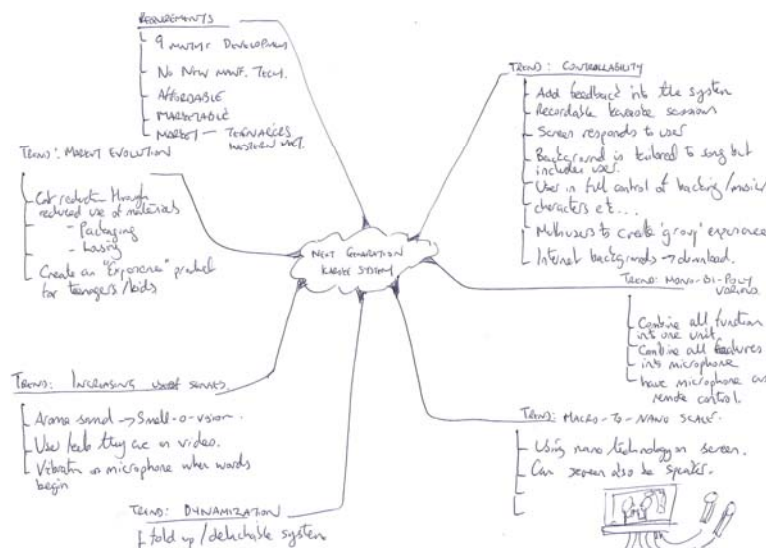 REQUIREMENTS
9 MONTHS DEVELOPMENT
NO NEW MANF. TECH.
AFFORDABLE
MARKETABLE
MARKET — TEENAGERS
WESTERN
TREND: MARKET EVOLUTION
Cost reduction through
reduced use of materials
- Packaging
- housing
Create an "Experience" product
for teenagers/kids
TREND: INCREASING USE OF SENSES.
Aroma smell → Smell-o-vision.
User feels they are on video.
Vibration on microphone when words
begin
TREND: DYNAMIZATION
fold up/detachable system
NEXT GENERATION
SYSTEM
TREND: CONTROLLABILITY
Add feedback into the system
Recordable karaoke sessions
Screen responds to user
Background is tailored to song but
includes user.
User in full control of backing/music/
characters etc...
Multiusers to create 'group' experience
Internet backgrounds → download.
TREND: MONO-BI-POLY
VARIOUS
Combine all function
into one unit
Combine all features
into microphone
have microphone as
remote control.
TREND: MACRO-TO-NANO SCALE.
Using nano technology on screen.
Can screen also be speaker.